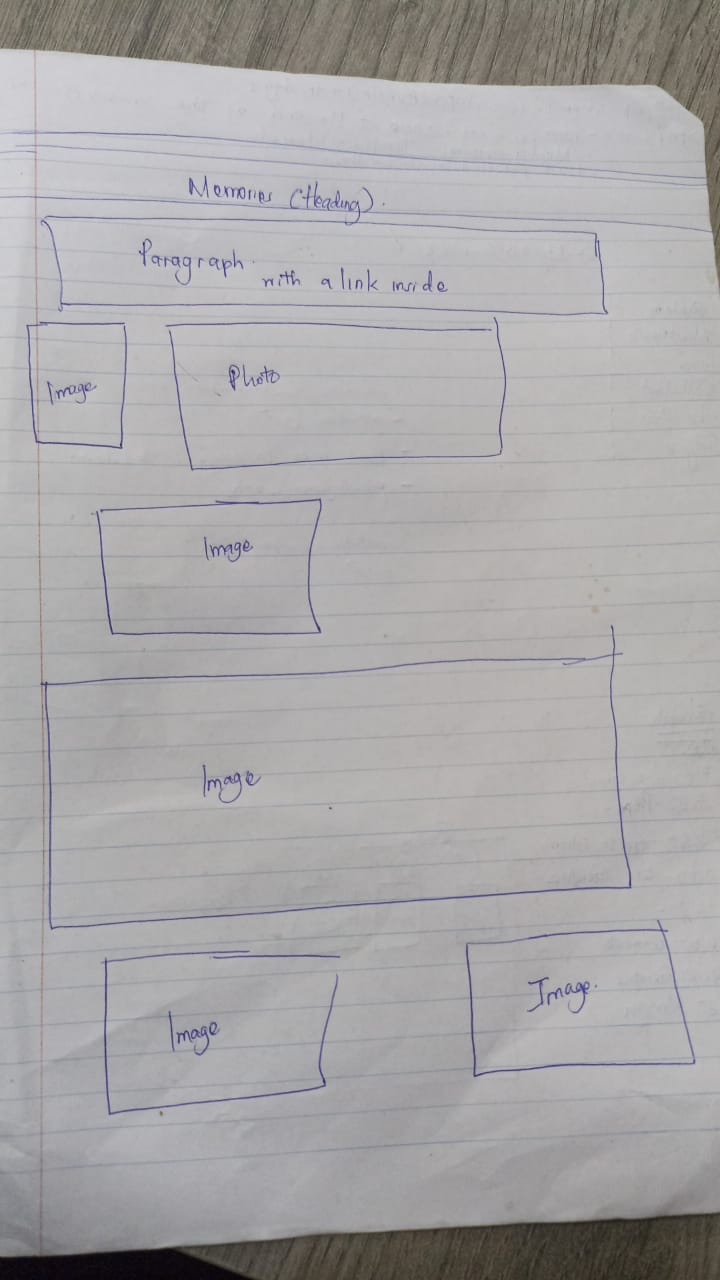 Memories (Heading).
Paragraph
with a link inside
Image
Photo
Image
Image
Image
Image.